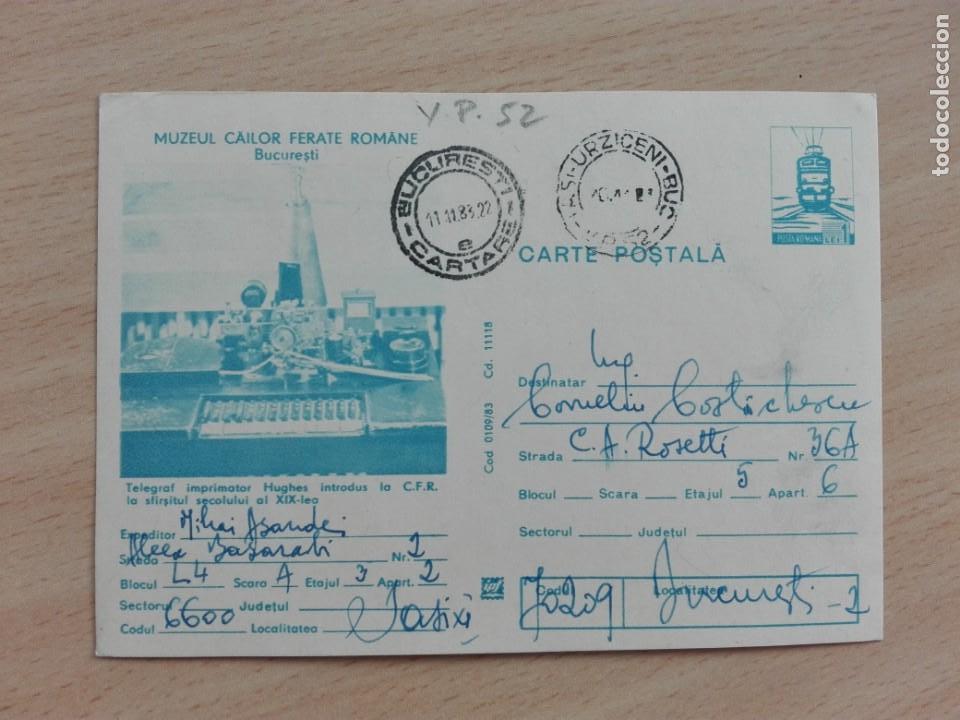 V.P. 52
MUZEUL CĂILOR FERATE ROMÂNE
București
BUCUREȘTI
11.11.83.22
e
- CARTARE -
IAȘI-URZICENI-BUC
POSTA ROMANA
CARTE POȘTALĂ
Telegraf imprimator Hughes introdus la C.F.R.
la sfîrșitul secolului al XIX-lea
Expeditor Mihai Asandei
Strada Aleea Basarabi Nr. 2
Blocul L4 Scara A Etajul 3 Apart. 2
Sectorul Județul
Codul 6600 Localitatea Iași
Cod 0109/83 Cd. 11118
Destinatar Ing.
Corneliu Costăchescu
Strada C.A. Rosetti Nr 36A
Blocul Scara Etajul 5 Apart. 6
Sectorul Județul
Codul Localitatea
70209 București - 2
todocoleccion